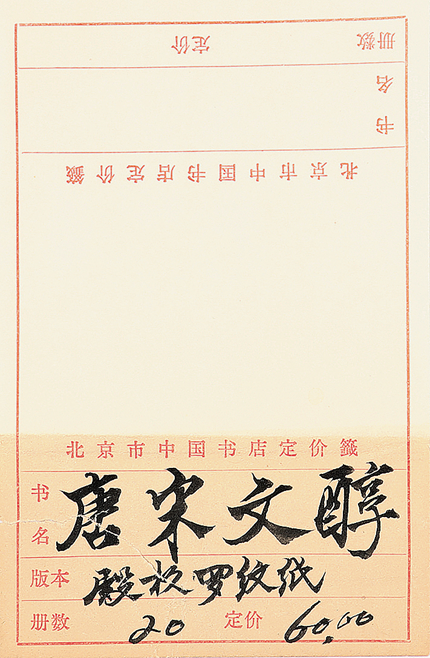 册数 定价
书名
北京市中国书店定价籤
北京市中国书店定价籤
书名 唐宋文醇
版本 殿板罗纹纸
册数 20 定价 60.00